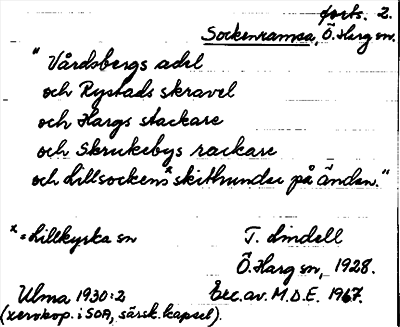 forts. 2.
Sockenramsa, Ö. Harg sn.
" Vårdsbergs adel
och Rystads skravel
och Hargs stackare
och Skrukebys rackare
och Lillsockens* skithundar på änden."
* = Lillkyrka sn
T. Lindell
Ö. Harg sn, 1928.
Ulma 1930:2
Exc. av. M.D.E. 1967.
(xerokop. i SOA, särsk. kapsel).